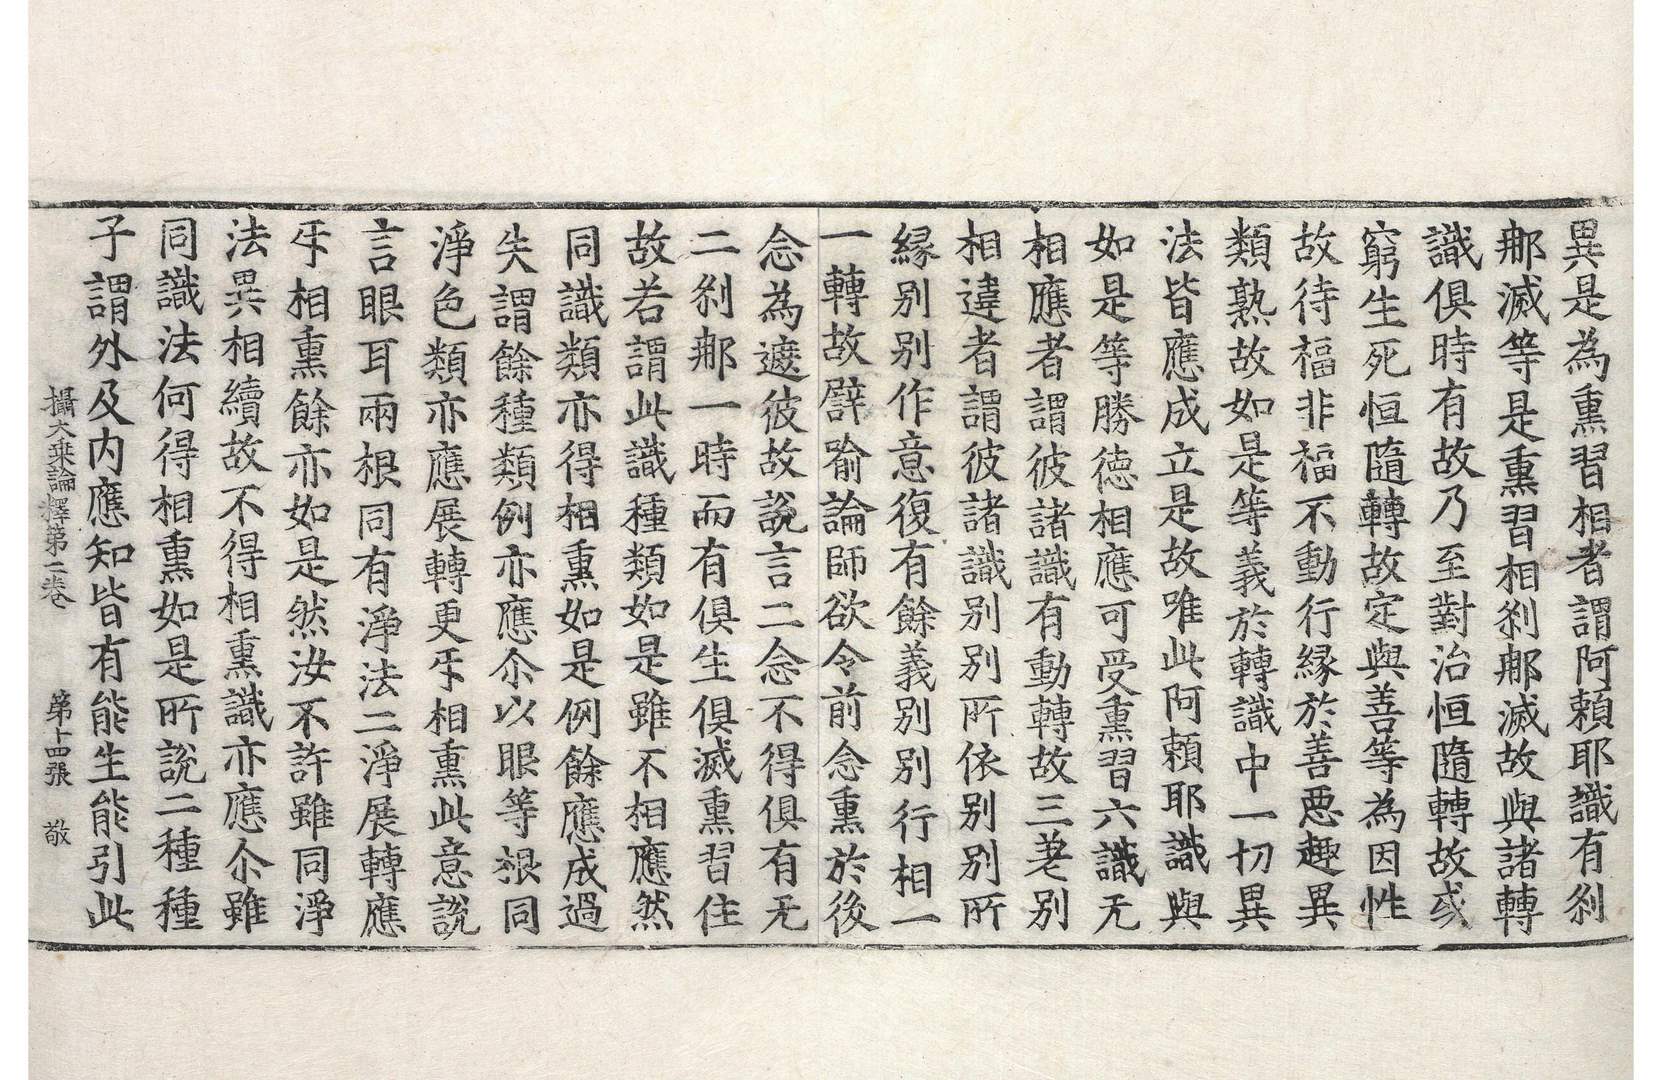 異是為熏習相者謂阿頼耶識有刹
那滅等是熏習相刹那滅故與諸轉
識俱時有故乃至對治恒隨轉故或
窮生死恒隨轉故定與善等為因性
故待福非福不動行緣於善悪趣異
類熟故如是等義於轉識中一切異
法皆應成立是故唯此阿頼耶識與
如是等勝德相應可受熏習六識无
相應者謂彼諸識有動轉故三差別
相違者謂彼諸識別別所依別別所
緣別別作意復有餘義別別行相一
一轉故譬喻論師欲令前念熏於後
念為遮彼故說言二念不得俱有无
二刹那一時而有俱生俱滅熏習住
故若謂此識種類如是雖不相應然
同識類亦得相熏如是例餘應成過
失謂餘種類例亦應尒以眼等根同
淨色類亦應展轉更㸦相熏此意說
言眼耳兩根同有淨法二淨展轉應
㸦相熏餘亦如是然汝不許雖同淨
法異相續故不得相熏識亦應尒雖
同識法何得相熏如是所說二種種
子謂外及內應知皆有能生能引此
攝大乘論釋第二卷 第十四張 敬